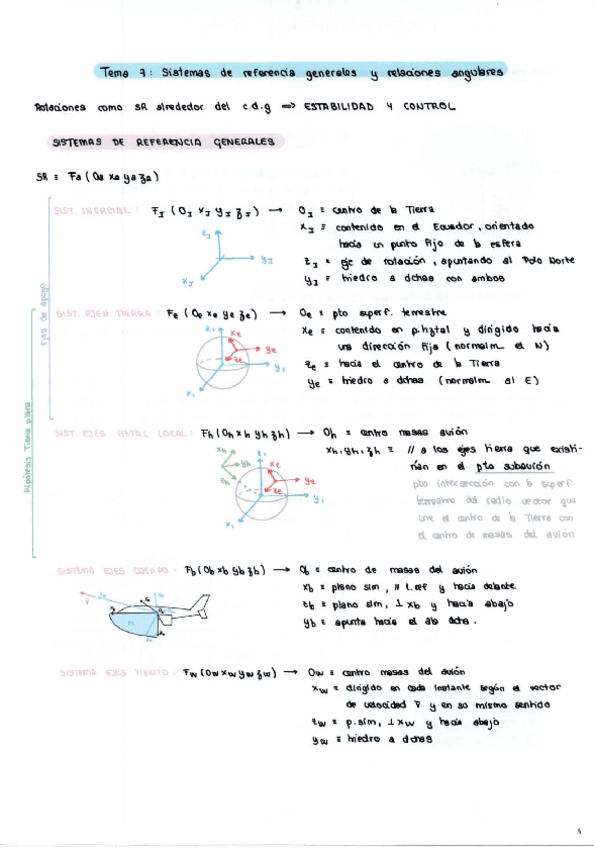 Tema 7: Sistemas de referencia generales y relaciones angulares
Rotaciones como SR alrededor del c.d.g => ESTABILIDAD Y CONTROL
SISTEMAS DE REFERENCIA GENERALES
SR ≡ Fa (Oa xa ya za)
SIST. INERCIAL: FI (OI xI yI zI) → OI ≡ centro de la Tierra
xI ≡ contenido en el Ecuador, orientado
hacia un punto fijo de la esfera
zI ≡ eje de rotación, apuntando al Polo Norte
yI ≡ triedro a dchas con ambos
zI
yI
xI
Ejes de apoyo
Hipótesis Tierra plana
SIST. EJES TIERRA: Fe (Oe xe ye ze) → Oe ≡ pto superf. terrestre
xe ≡ contenido en p.hztal y dirigido hacia
una dirección fija (normalm. el N)
ze ≡ hacia el centro de la Tierra
ye ≡ triedro a dchas (normalm al E)
z1
xe
ye
ze
y1
x1
SIST. EJES HZTAL LOCAL: Fh (Oh xh yh zh) → Oh ≡ centro masas avión
xh, yh, zh ≡ // a los ejes tierra que existi-
rían en el pto subavión
pto intersección con la superf.
terrestre del radio vector que
une el centro de la Tierra con
el centro de masas del avión
xh
yh
zh
z1
xe
ye
ze
y1
x1
SISTEMA EJES CUERPO: Fb (Ob xb yb zb) → Ob ≡ centro de masas del avión
xb ≡ plano sim, // l.ref y hacia delante
zb ≡ plano sim, ⊥ xb y hacia abajo
yb ≡ apunta hacia el ala dcha.
SISTEMA EJES VIENTO: Fw (Ow xw yw zw) → Ow ≡ centro masas del avión
xw ≡ dirigido en cada instante según el vector
de velocidad v y en su mismo sentido
zw ≡ p.sim, ⊥ xw y hacia abajo
yw ≡ triedro a dchas